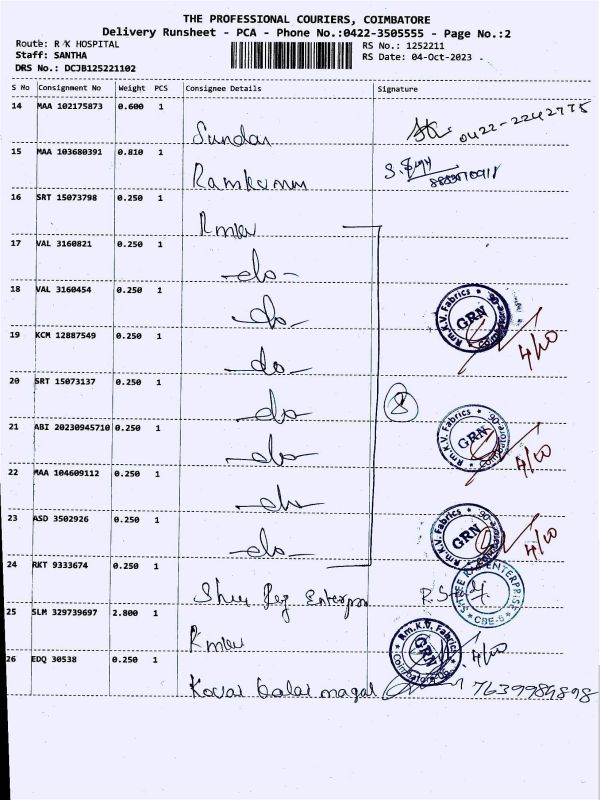 THE PROFESSIONAL COURIERS, COIMBATORE
Delivery Runsheet - PCA - Phone No.:0422-3505555 - Page No.:2
Route: R K HOSPITAL
RS No.: 1252211
Staff: SANTHA
RS Date: 04-Oct-2023
DRS No.: DCJB125221102
S No Consignment No Weight PCS Consignee Details Signature
14 MAA 102175873 0.600 1
Sundar 0422-2242775
15 MAA 103680391 0.810 1
Ramkumar S.
16 SRT 15073798 0.250 1
Rmkv
17 VAL 3160821 0.250 1
-do-
18 VAL 3160454 0.250 1
-do- Rm.K.V. Fabrics GRN 4/10
19 KCM 12887549 0.250 1
-do-
20 SRT 15073137 0.250 1
-do- 8
21 ABI 20230945710 0.250 1
-do- Rm.K.V. Fabrics GRN Coimbatore-06 4/10
22 MAA 104609112 0.250 1
-do-
23 ASD 3502926 0.250 1
-do- Rm.K.V. Fabrics GRN Coimbatore-06 4/10
24 RKT 9333674 0.250 1
Shree Raj Enterprise SHREE RAJ ENTERPRISE CBE-6
25 SLM 329739697 2.800 1
Rmkv Rm.K.V. Fabrics GRN Coimbatore-06 4/10
26 EDQ 30538 0.250 1
Kovai Kalai magal 7639989898